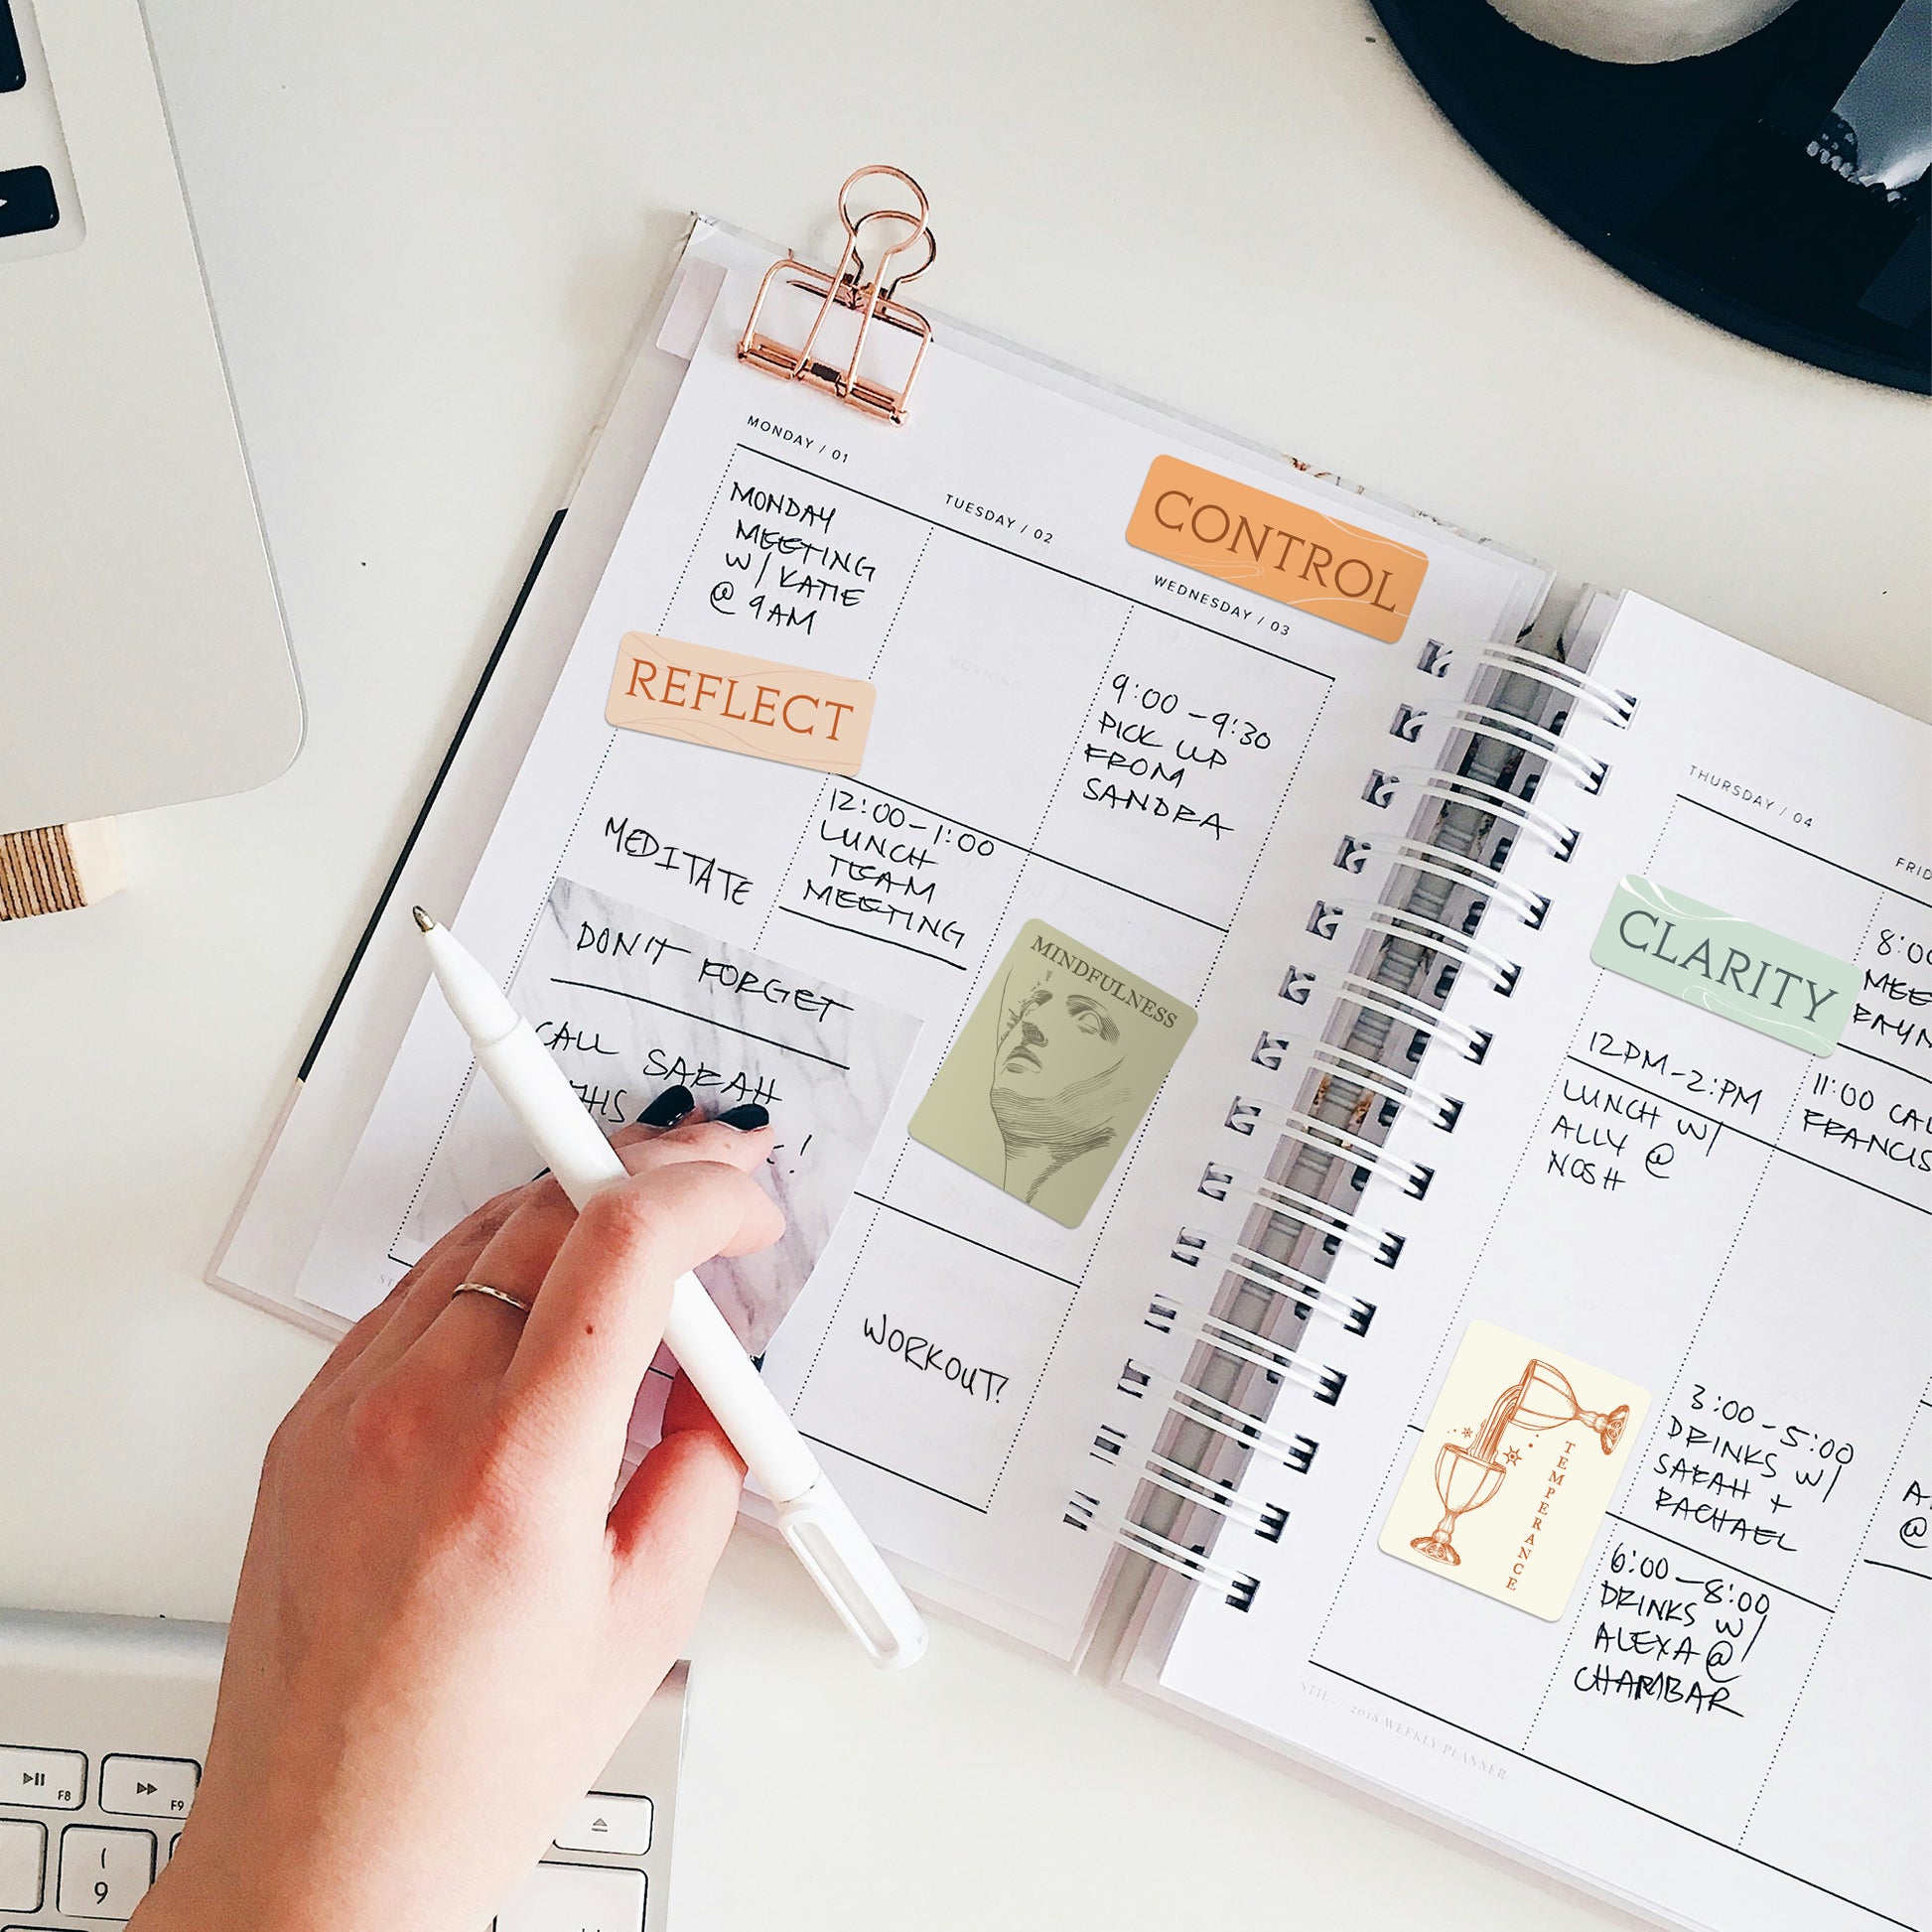 MONDAY / 01
MONDAY
MEETING
W/ KATIE
@ 9AM
REFLECT
MEDITATE
DON'T FORGET
CALL SARAH
THIS
!
TUESDAY / 02
12:00-1:00
LUNCH
TEAM
MEETING
WORKOUT!
CONTROL
WEDNESDAY / 03
9:00-9:30
PICK UP
FROM
SANDRA
MINDFULNESS
THURSDAY / 04
CLARITY
12PM-2:PM
LUNCH W/
ALLY @
NOSH
TEMPERANCE
FRID
8:00
MEE
RAYM
11:00 CAL
FRANCIS
3:00-5:00
DRINKS W/
SARAH +
RACHAEL
6:00-8:00
DRINKS W/
ALEXA @
CHAMBAR
A
@
2018 WEEKLY PLANNER
F8
F9
(
9